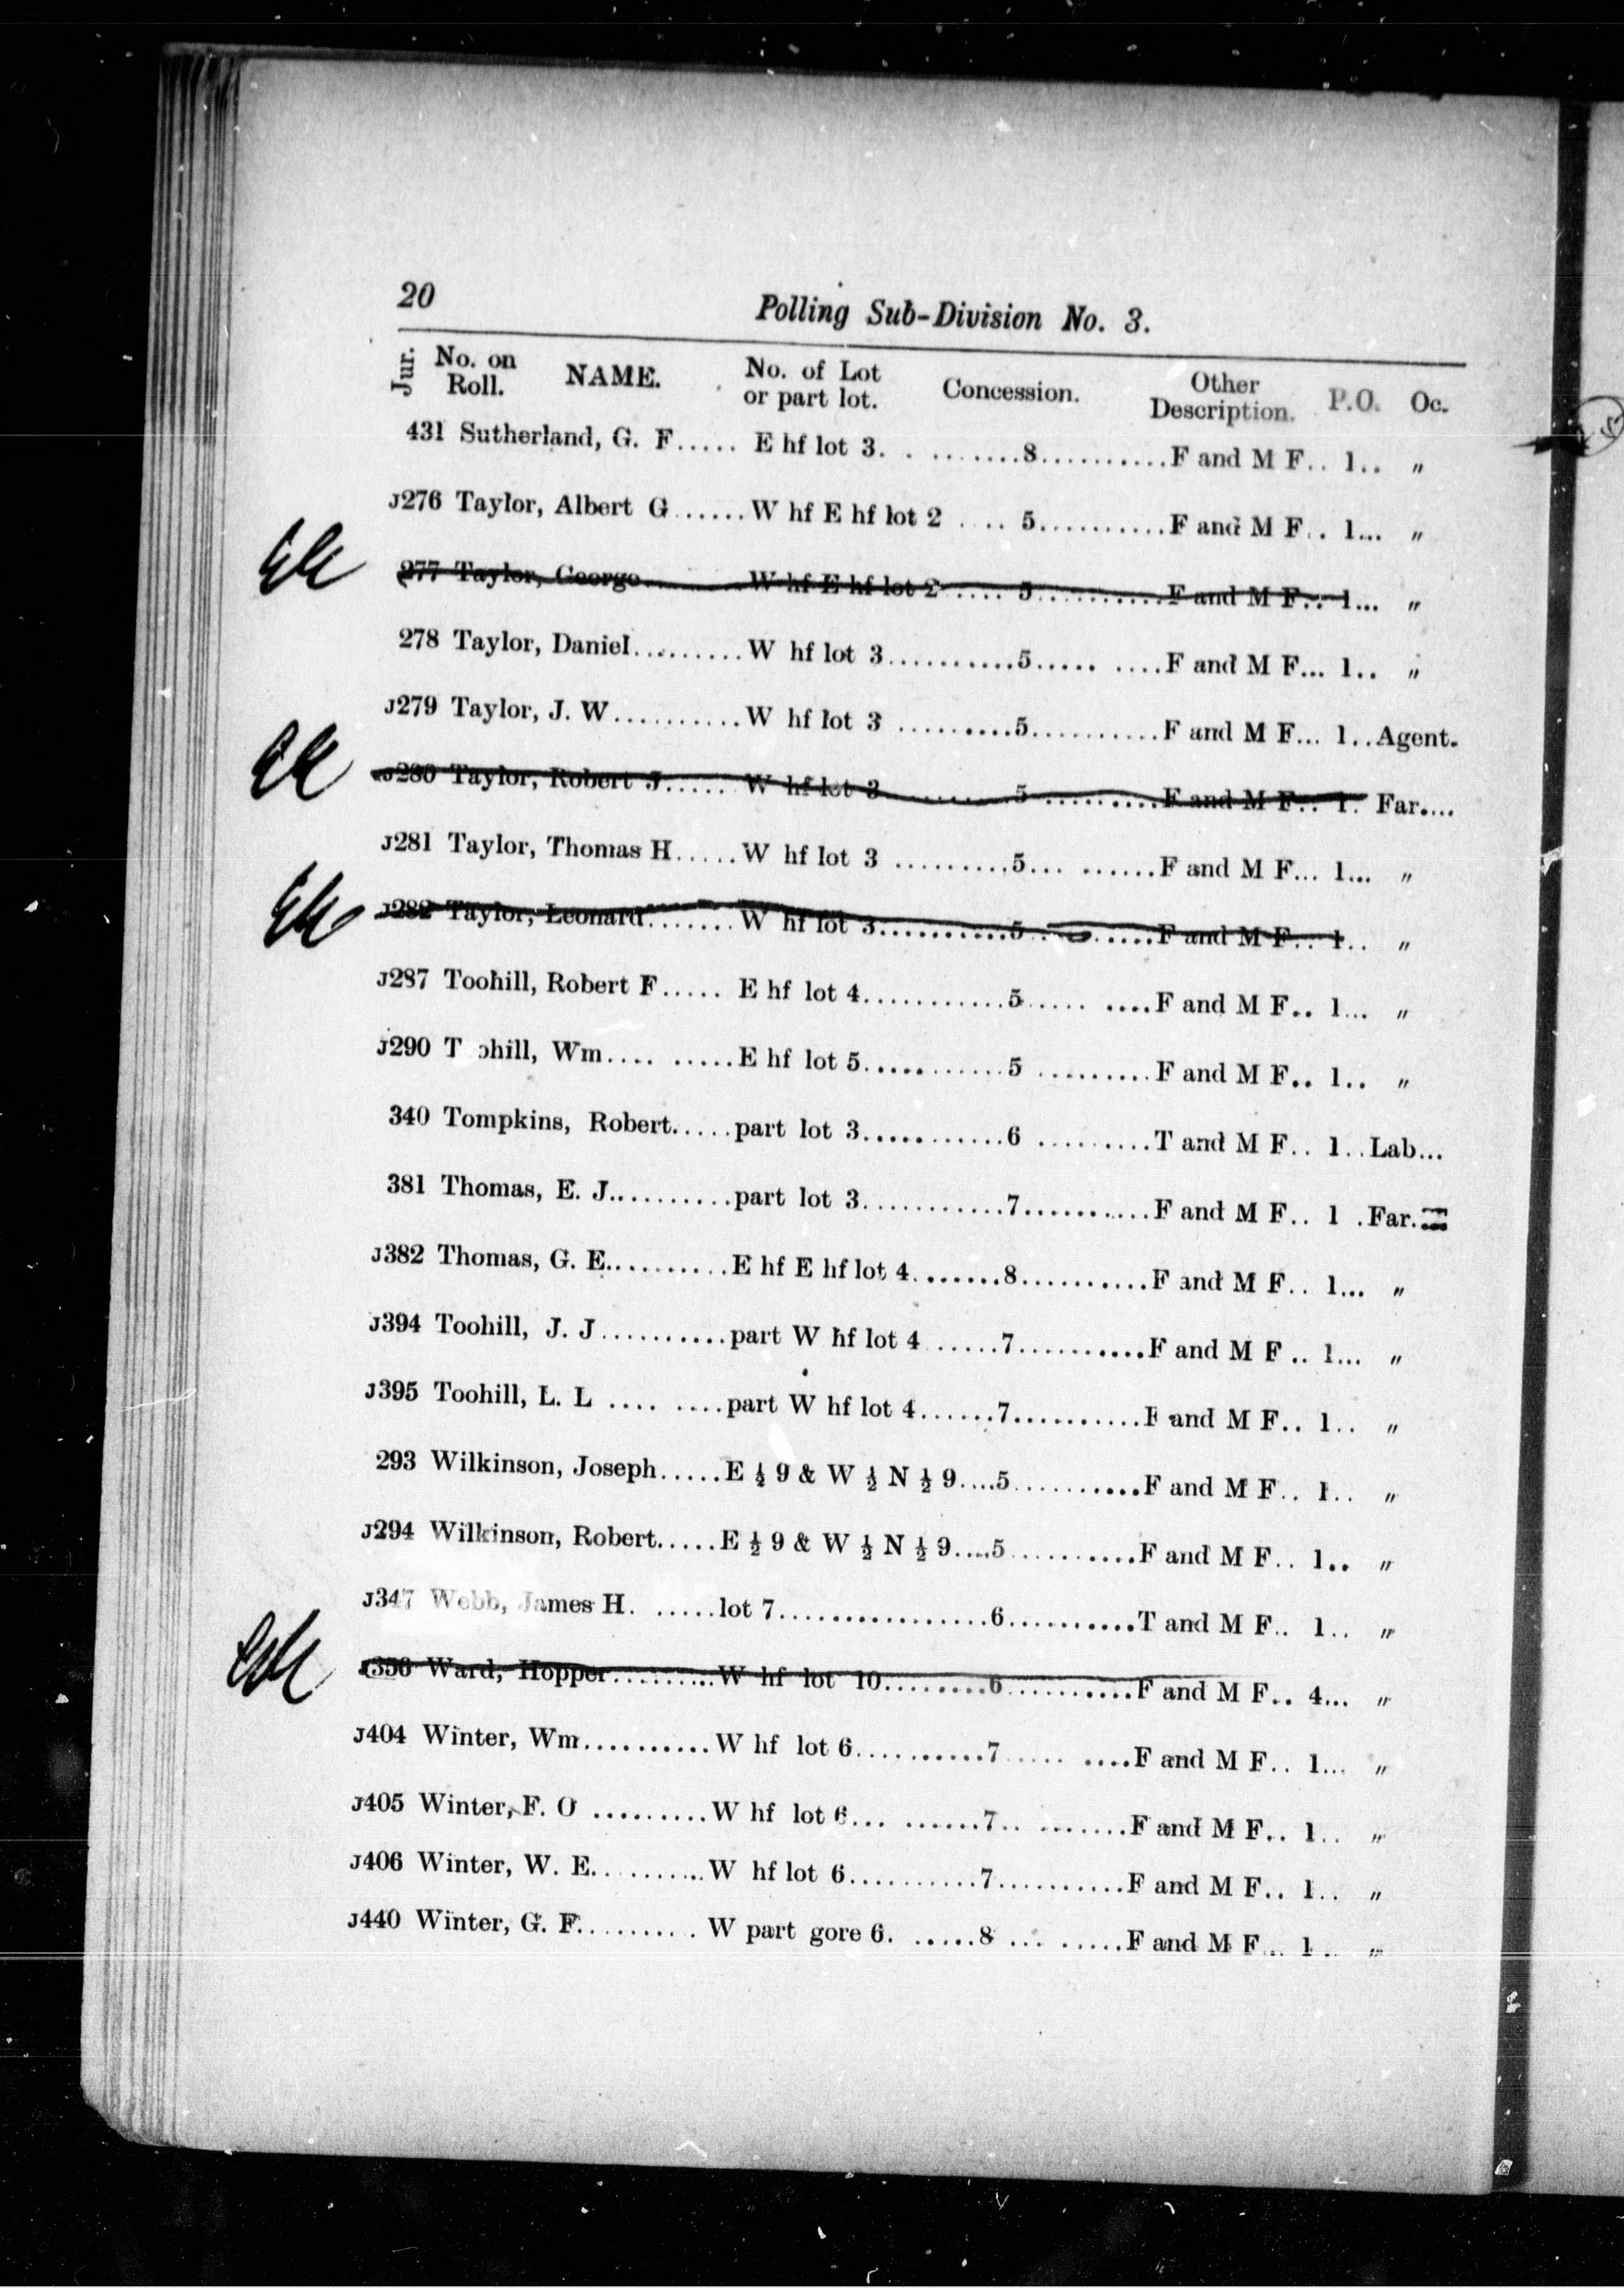 20 Polling Sub-Division No. 3.
Jur. No. on Roll. NAME. No. of Lot or part lot. Concession. Other Description. P.O. Oc.
431 Sutherland, G. F..... E hf lot 3. . ........8..........F and M F.. 1.. "
J276 Taylor, Albert G......W hf E hf lot 2 .... 5..........F and M F.. 1... "
277 Taylor, George.........W hf E hf lot 2..... 5..........F and M F... 1... "
278 Taylor, Daniel.........W hf lot 3..........5..... ....F and M F... 1.. "
J279 Taylor, J. W..........W hf lot 3 .........5..........F and M F... 1..Agent.
J280 Taylor, Robert J..... W hf lot 3..........5 .........F and M F... 1. Far....
J281 Taylor, Thomas H.....W hf lot 3 .........5... ......F and M F... 1... "
J282 Taylor, Leonard.......W hf lot 3..........5.........F and M F... 1.. "
J287 Toohill, Robert F..... E hf lot 4...........5..... ....F and M F.. 1... "
J290 T ohill, Wm.... .....E hf lot 5...........5 .........F and M F.. 1.. "
340 Tompkins, Robert.....part lot 3...........6 .........T and M F.. 1..Lab...
381 Thomas, E. J..........part lot 3...........7..........F and M F.. 1 .Far.
J382 Thomas, G. E..........E hf E hf lot 4.......8..........F and M F.. 1... "
J394 Toohill, J. J..........part W hf lot 4 ......7..........F and M F .. 1... "
J395 Toohill, L. L .... ....part W hf lot 4......7..........F and M F.. 1.. "
293 Wilkinson, Joseph.....E ½ 9 & W ½ N ½ 9....5..........F and M F.. 1.. "
J294 Wilkinson, Robert.....E ½ 9 & W ½ N ½ 9....5..........F and M F.. 1.. "
J347 Webb, James H. ......lot 7................6..........T and M F.. 1.. "
J356 Ward, Hopper.........W hf lot 10.........6..........F and M F.. 4... "
J404 Winter, Wm..........W hf lot 6..........7..... ....F and M F.. 1... "
J405 Winter, F. O .........W hf lot 6... ......7.. .......F and M F.. 1.. "
J406 Winter, W. E.........W hf lot 6..........7..........F and M F.. 1.. "
J440 Winter, G. F.......... W part gore 6. .....8 ... .....F and M F... 1.. "